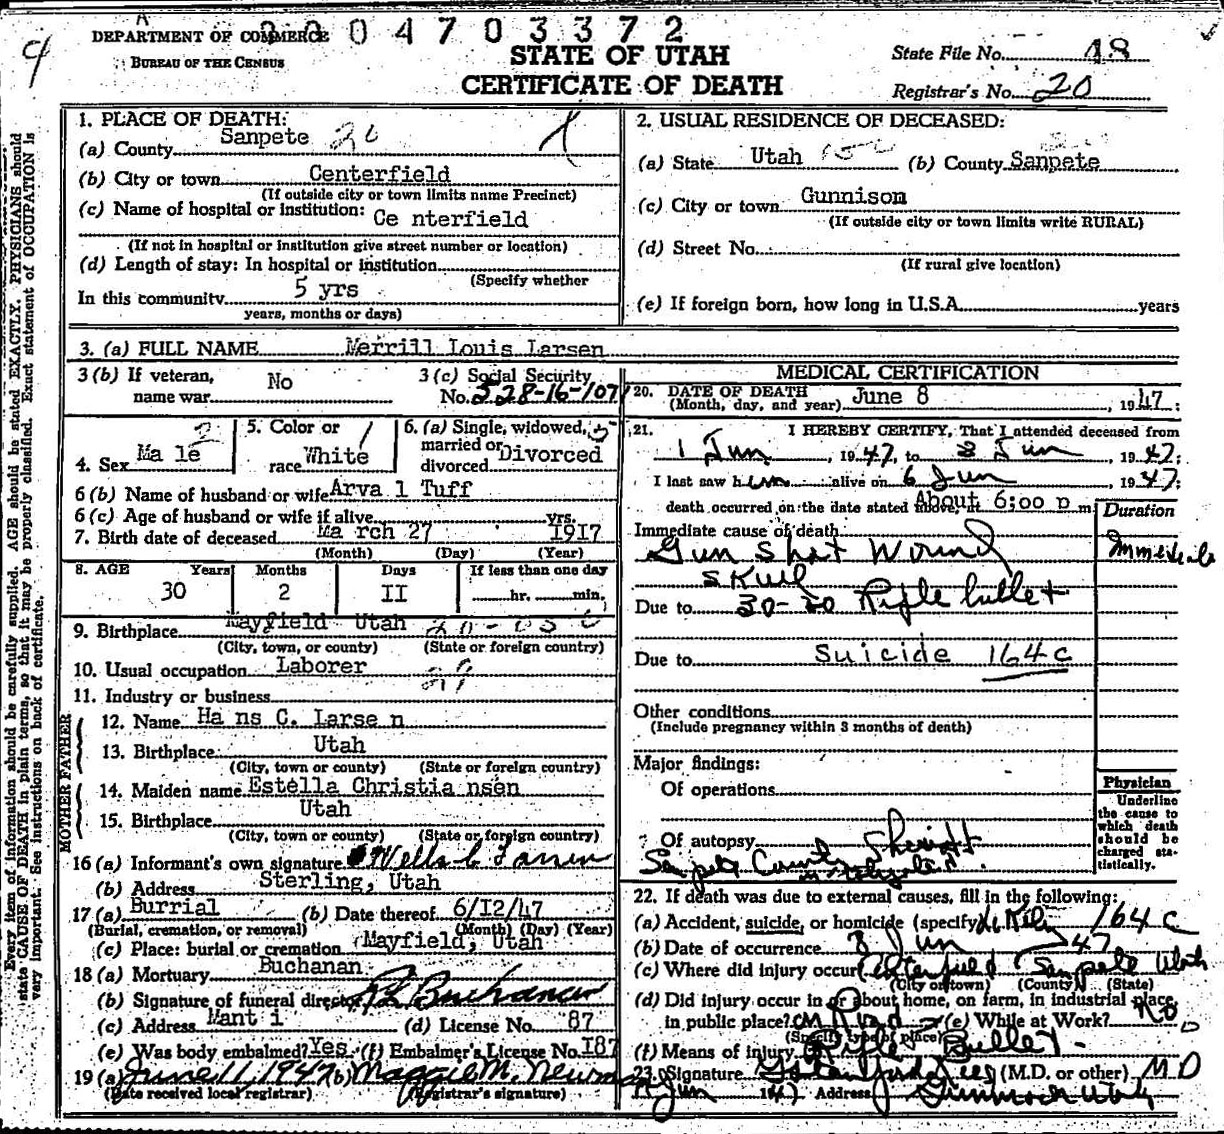 4
DEPARTMENT OF COMMERCE
BUREAU OF THE CENSUS
0 4 7 0 3 3 7 2
STATE OF UTAH
CERTIFICATE OF DEATH
State File No. 48
Registrar's No. 20
Every item of information should be carefully supplied. AGE should be stated EXACTLY. PHYSICIANS should
state CAUSE OF DEATH in plain terms, so that it may be properly classified. Exact statement of OCCUPATION is
very important. See instructions on back of certificate.
1. PLACE OF DEATH:
(a) County Sanpete 20
(b) City or town Centerfield
(If outside city or town limits name Precinct)
(c) Name of hospital or institution: Ce nterfield
(If not in hospital or institution give street number or location)
(d) Length of stay: In hospital or institution
(Specify whether
In this community 5 yrs
years, months or days)
2. USUAL RESIDENCE OF DECEASED:
(a) State Utah (b) County Sanpete
(c) City or town Gunnison
(If outside city or town limits write RURAL)
(d) Street No.
(If rural give location)
(e) If foreign born, how long in U.S.A. years
3. (a) FULL NAME Merrill Louis Larsen
3 (b) If veteran, name war No
3 (c) Social Security No. 528-16-1071
4. Sex Ma le 2
5. Color or race White 1
6. (a) Single, widowed, married or divorced Divorced 5
6 (b) Name of husband or wife Arva l Tuff
6 (c) Age of husband or wife if alive yrs.
7. Birth date of deceased Ma rch 27 I9I7
(Month) (Day) (Year)
8. AGE Years Months Days If less than one day
30 2 II hr. min.
9. Birthplace Mayfield Utah
(City, town, or county) (State or foreign country)
10. Usual occupation Laborer
11. Industry or business
FATHER
12. Name Ha ns C. Larse n
13. Birthplace Utah
(City, town or county) (State or foreign country)
MOTHER
14. Maiden name Estella Christia nsen
15. Birthplace Utah
(City, town or county) (State or foreign country)
16 (a) Informant's own signature Larsen
(b) Address Sterling, Utah
17 (a) Burrial (b) Date thereof 6/I2/47
(Burial, cremation, or removal) (Month) (Day) (Year)
(c) Place: burial or cremation Mayfield, Utah
18 (a) Mortuary Buchanan
(b) Signature of funeral director Buchanan
(c) Address Mant i (d) License No. 87
(e) Was body embalmed? Yes. (f) Embalmer's License No. I87
19 (a) June 11, 1947 (b) Maggie M. Newman
(Date received local registrar) (Registrar's signature)
MEDICAL CERTIFICATION
20. DATE OF DEATH
(Month, day, and year) June 8, 1947;
21. I HEREBY CERTIFY, That I attended deceased from
1 Jun, 1947, to 8 Jun 1947;
I last saw him alive on 6 Jun, 1947;
death occurred on the date stated above, at About 6:00 p m.
Duration
Immediate cause of death
Gun Shot Wound
Skull
Immediate
Due to 30-30 Rifle bullet
Due to Suicide 164c
Other conditions
(Include pregnancy within 3 months of death)
Major findings:
Of operations
Of autopsy
Sanpete County Sheriff
investigated
Physician
Underline
the cause to
which death
should be
charged sta-
tistically.
22. If death was due to external causes, fill in the following:
(a) Accident, suicide, or homicide (specify) 164 c
(b) Date of occurrence 8 Jun 47
(c) Where did injury occur? Centerfield Sanpete Utah
(City or town) (County) (State)
(d) Did injury occur in or about home, on farm, in industrial place,
in public place? On Road (e) While at Work? No
(Specify type of place)
(f) Means of injury Rifle Bullet
23. Signature (M.D. or other) MD
Jun 194 Address Gunnison Utah